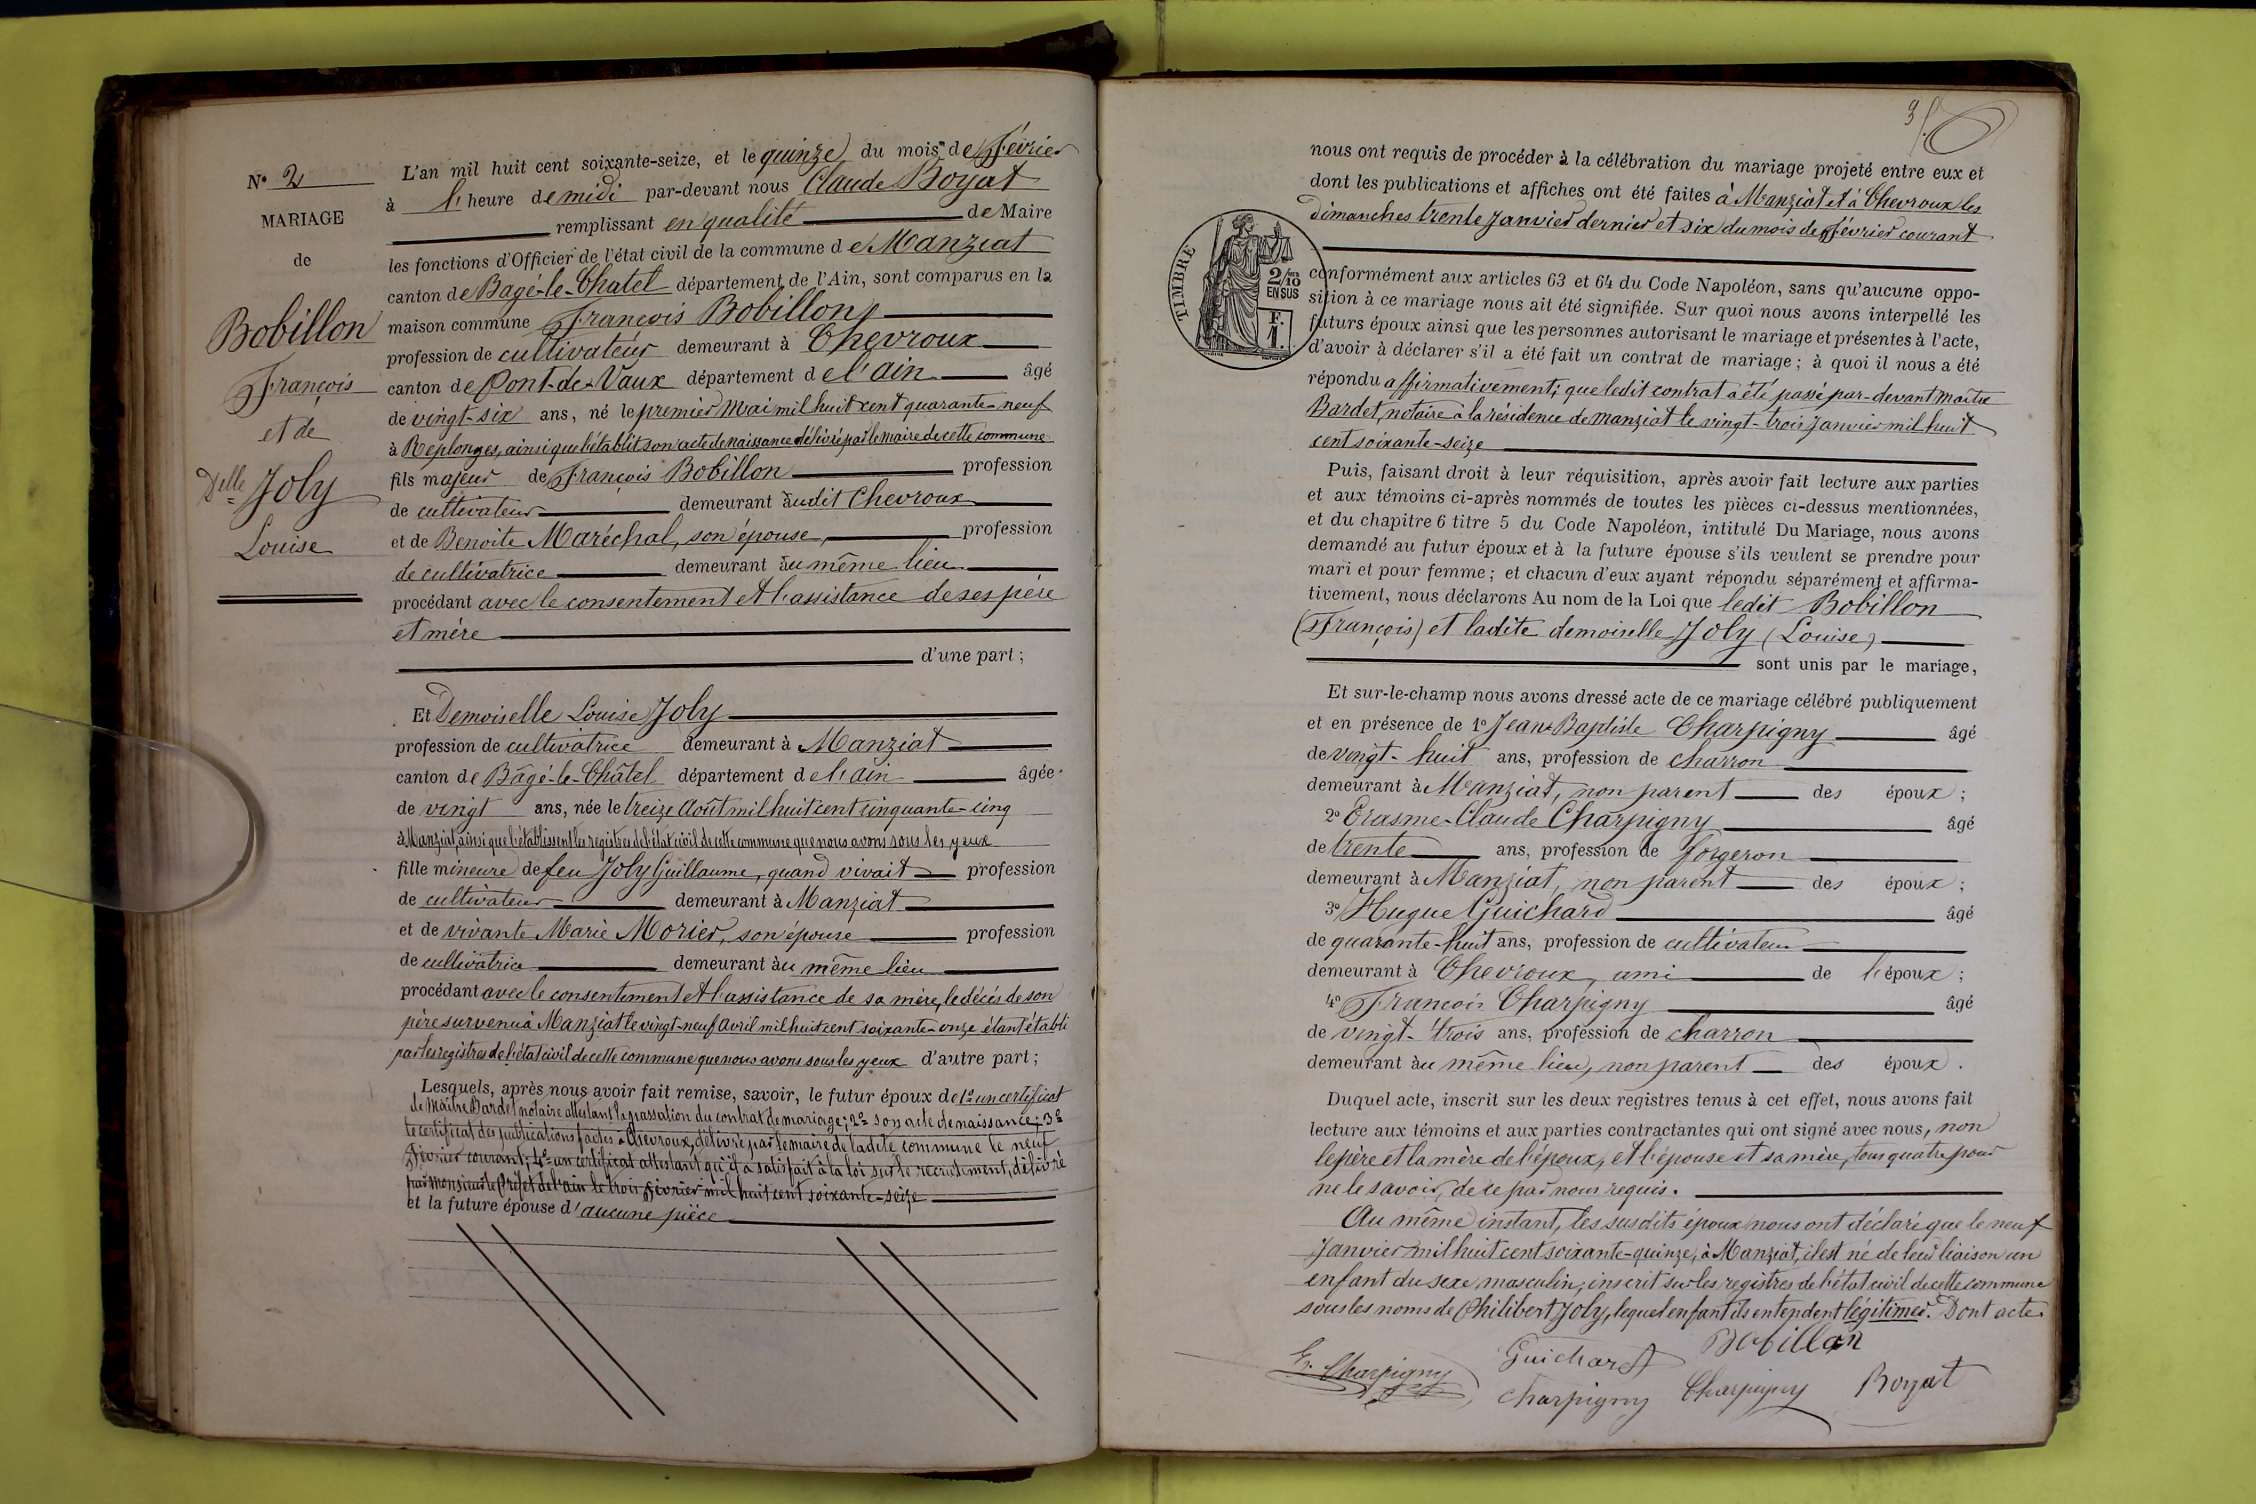 N° 2
MARIAGE
de
Bobillon
François
et de
Delle Joly
Louise
L'an mil huit cent soixante-seize, et le quinze du mois de Février
à l'heure de midi par-devant nous Claude Boyat
remplissant en qualité de Maire
les fonctions d'Officier de l'état civil de la commune de Manziat
canton de Bagé-le-Chatel département de l'Ain, sont comparus en la
maison commune François Bobillon,
profession de cultivateur demeurant à Chevroux
canton de Pont-de-Vaux département de l'ain âgé
de vingt-six ans, né le premier Mai mil huit cent quarante-neuf
à Replonges, ainsi que l'établit son acte de naissance délivré par le maire de cette commune
fils majeur de François Bobillon profession
de cultivateur demeurant àudit Chevroux
et de Benoite Maréchal, son épouse, profession
de cultivatrice demeurant àu même lieu
procédant avec le consentement et l'assistance de ses père
et mère
d'une part ;
Et Demoiselle Louise Joly
profession de cultivatrice demeurant à Manziat
canton de Bâgé-le-Châtel département de l'ain âgée
de vingt ans, née le treize Août mil huit cent cinquante-cinq
à Manziat, ainsi que l'établissent les registres de l'état civil de cette commune que nous avons sous les yeux
fille mineure de feu Joly Guillaume, quand vivait profession
de cultivateur demeurant à Manziat
et de vivante Marie Morier, son épouse profession
de cultivatrice demeurant àu même lieu
procédant avec le consentement et l'assistance de sa mère, le décès de son
père survenu à Manziat le vingt-neuf Avril mil huit cent soixante-onze étant établi
par les registres de l'état civil de cette commune que nous avons sous les yeux d'autre part ;
Lesquels, après nous avoir fait remise, savoir, le futur époux de 1° un certificat
de Maître Bardet notaire attestant la passation du contrat de mariage ; 2° son acte de naissance ; 3°
le certificat des publications faites à Chevroux, délivré par le maire de ladite commune le neuf
Février courant ; 4° un certificat attestant qu'il a satisfait à la loi sur le recrutement, délivré
par Monsieur le Préfet de l'ain le trois Février mil huit cent soixante-seize
et la future épouse d'aucune pièce
3
nous ont requis de procéder à la célébration du mariage projeté entre eux et
dont les publications et affiches ont été faites à Manziat et à Chevroux les
dimanches trente Janvier dernier et six du mois de Février courant
TIMBRE
2/10
EN SUS
F.
1.
conformément aux articles 63 et 64 du Code Napoléon, sans qu'aucune oppo-
sition à ce mariage nous ait été signifiée. Sur quoi nous avons interpellé les
futurs époux ainsi que les personnes autorisant le mariage et présentes à l'acte,
d'avoir à déclarer s'il a été fait un contrat de mariage ; à quoi il nous a été
répondu affirmativement ; que ledit contrat a été passé par-devant maître
Bardet, notaire à la résidence de Manziat le vingt-trois Janvier mil huit
cent soixante-seize
Puis, faisant droit à leur réquisition, après avoir fait lecture aux parties
et aux témoins ci-après nommés de toutes les pièces ci-dessus mentionnées,
et du chapitre 6 titre 5 du Code Napoléon, intitulé Du Mariage, nous avons
demandé au futur époux et à la future épouse s'ils veulent se prendre pour
mari et pour femme ; et chacun d'eux ayant répondu séparément et affirma-
tivement, nous déclarons Au nom de la Loi que ledit Bobillon
(François) et ladite demoiselle Joly (Louise)
sont unis par le mariage,
Et sur-le-champ nous avons dressé acte de ce mariage célébré publiquement
et en présence de 1° Jean-Baptiste Charpigny âgé
de vingt-huit ans, profession de charron
demeurant à Manziat, non parent des époux ;
2° Erasme-Claude Charpigny âgé
de trente ans, profession de forgeron
demeurant à Manziat, non parent des époux ;
3° Hugue Guichard âgé
de quarante-huit ans, profession de cultivateur
demeurant à Chevroux, ami de l'époux ;
4° François Charpigny âgé
de vingt-trois ans, profession de charron
demeurant àu même lieu, non parent des époux.
Duquel acte, inscrit sur les deux registres tenus à cet effet, nous avons fait
lecture aux témoins et aux parties contractantes qui ont signé avec nous, non
le père et la mère de l'époux, et l'épouse et sa mère, tous quatre pour
ne le savoir, de ce par nous requis.
Au même instant, les susdits époux nous ont déclaré que le neuf
Janvier mil huit cent soixante-quinze, à Manziat, il est né de leur liaison un
enfant du sexe masculin, inscrit sur les registres de l'état civil de cette commune
sous les noms de Philibert Joly, lequel enfant ils entendent légitimer. Dont acte
Bobillon
Er. Charpigny Guichard
charpigny Charpigny Boyat